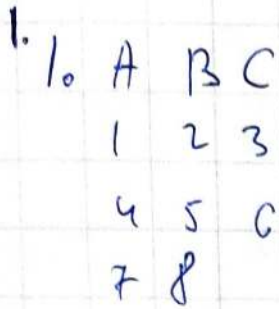 1.
1. A B C
1 2 3
4 5 6
7 8